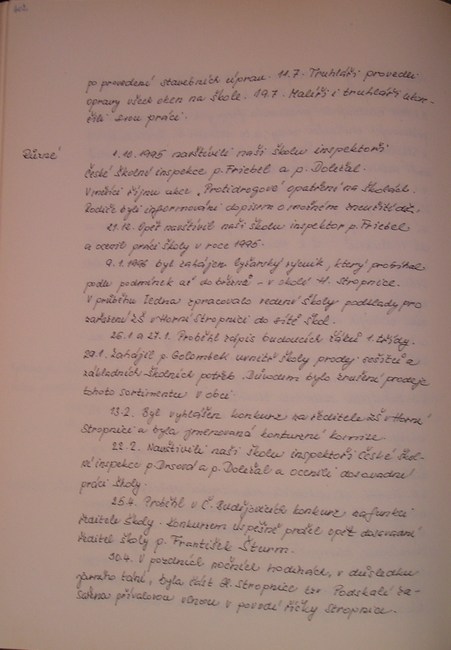 po provedení stavebních úprav. 11.7. Truhláři provedli
opravy všech oken na škole. 19.7. Malíři i truhláři ukon-
čili svou práci.
Různé
1.10.1995 navštívili naši školu inspektoři
České školní inspekce p. Friebel a p. Doležal.
V měsíci říjnu akce „Protidrogové opatření na školách.
Rodiče byli informováni dopisem o možném zneužití dětí.
21.12. Opět navštívil naši školu inspektor p. Friebel
a ocenil práci školy v roce 1995.
9.1.1996 byl zahájen lyžařský výcvik, který probíhal
podle podmínek až do března - v okolí H. Stropnice.
V průběhu ledna zpracovalo vedení školy podklady pro
zařazení ZŠ v Horní Stropnici do sítě škol.
26.1. a 27.1. Proběhl zápis budoucích žáků 1. třídy.
29.1. Zahájil p. Golombek uvnitř školy prodej sešitů a
základních školních potřeb. Důvodem bylo zrušení prodeje
tohoto sortimentu v obci.
13.2. Byl vyhlášen konkurz na ředitele ZŠ v Horní
Stropnici a byla jmenovaná konkurzní komise.
22.2. Navštívili naši školu inspektoři České škol-
ní inspekce p. a p. Doležal a ocenili dosavadní
práci školy.
25.4. Proběhl v Č. Budějovicích konkurz na funkci
ředitele školy. Konkurzem úspěšně prošel opět dosavadní
ředitel školy p. František Šturm.
30.4. V pozdních nočních hodinách, v důsledku
jarního tání, byla část H. Stropnice tzv. Podskalí za-
sažena přívalovou vlnou v povodí říčky Stropnice.